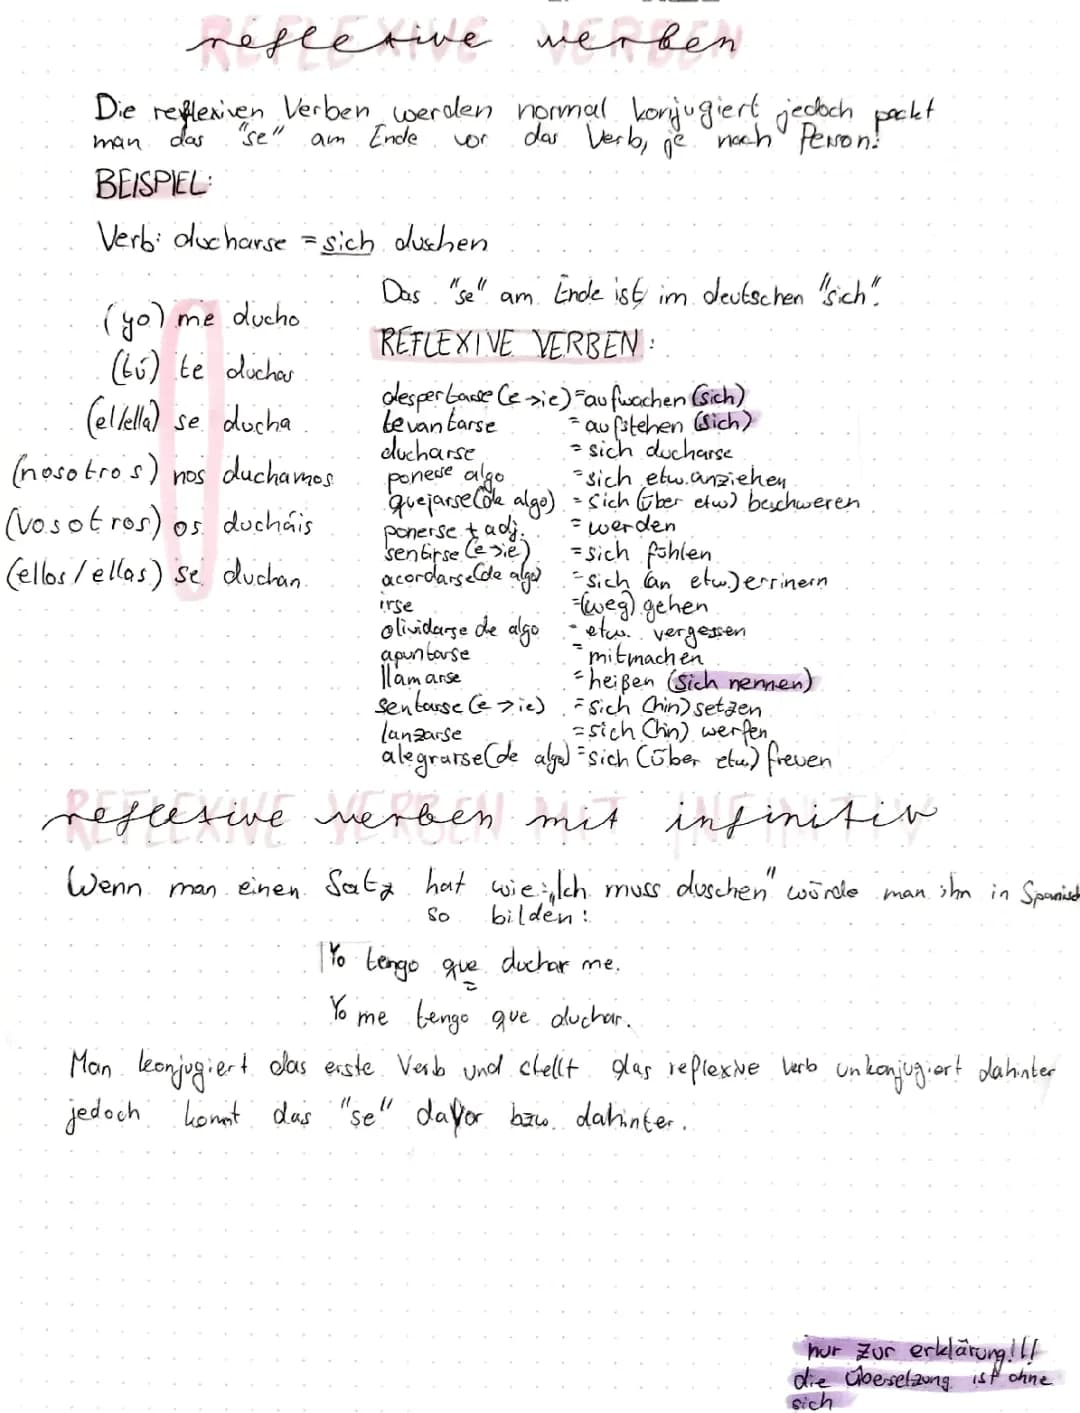 reflexive verben
Die reflexiven Verben werden normal konjugiert jedoch packt
man das "se" am Ende vor das Verb, je nach Person!
BEISPIEL:
Verb: ducharse = sich duschen
Das "se" am Ende ist im deutschen "sich".
(yo) me ducho
(tú) te duchas
(el/ella) se ducha
(nosotros) nos duchamos
(vosotros) os ducháis
(ellos/ellas) se duchan
REFLEXIVE VERBEN:
despertarse (e→ie) = aufwachen (sich)
levantarse = aufstehen (sich)
ducharse = sich ducharse
ponerse algo = sich etw. anziehen
quejarse (de algo) = sich (über etw.) beschweren
ponerse + adj. = werden
sentirse (e→ie) = sich fühlen
acordarse (de algo) = sich (an etw.) errinern
irse = (weg) gehen
olividarse de algo = etw. vergessen
apuntarse = mitmachen
llamarse = heißen (sich nennen)
sentarse (e→ie) = sich (hin) setzen
lanzarse = sich (hin) werfen
alegrarse (de algo) = sich (über etw.) freuen
reflexive verben mit infinitiv
Wenn man einen Satz hat wie: „Ich muss duschen" würde man ihn in Spanisch
so bilden:
Yo tengo que duchar me.
Yo me tengo que duchar.
Man konjugiert das erste Verb und stellt das reflexive Verb unkonjugiert dahinter
jedoch kommt das "se" davor bzw. dahinter.
nur zur erklärung!!!
die übersetzung ist ohne
sich